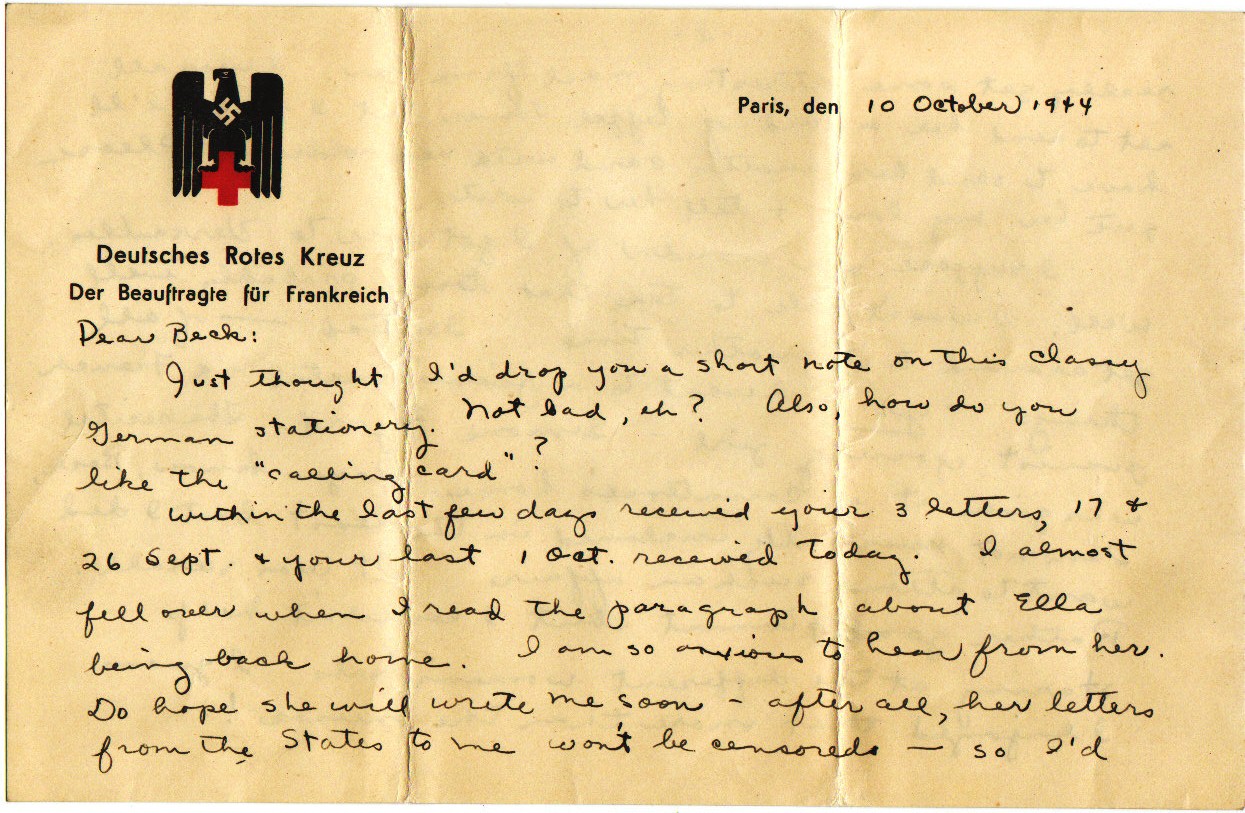 Paris, den 10 October 1944
Deutsches Rotes Kreuz
Der Beauftragte für Frankreich
Dear Beck:
Just thought I'd drop you a short note on this classy
German stationery. Not bad, eh? Also, how do you
like the "calling card"?
Within the last few days received your 3 letters, 17 &
26 Sept. & your last 1 Oct. received today. I almost
fell over when I read the paragraph about Ella
being back home. I am so anxious to hear from her.
Do hope she will write me soon - after all, her letters
from the States to me won't be censored — so I'd